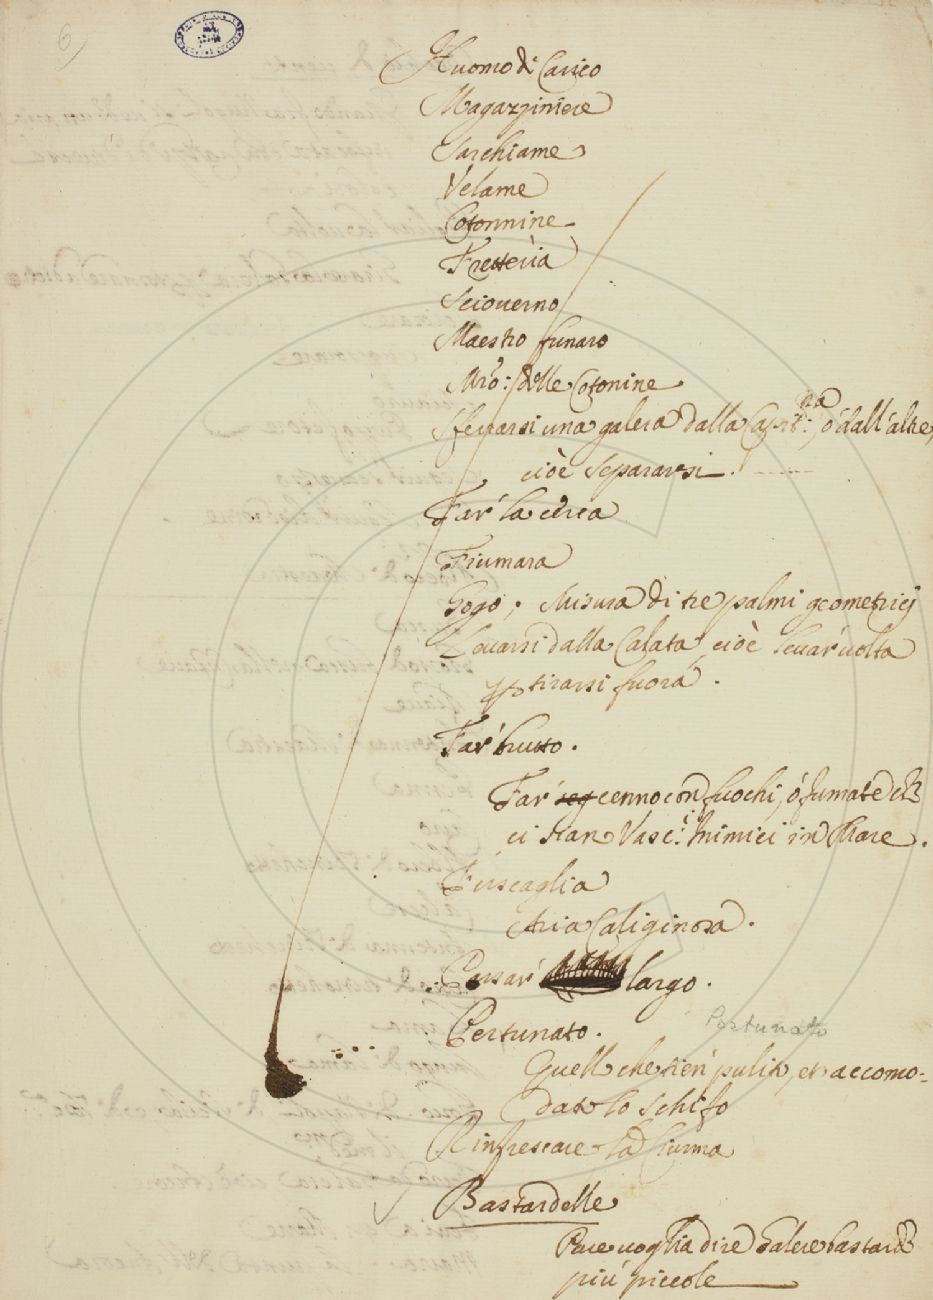 6)
Huomo di Carico
Magazziniere
Sarchiame
Velame
Cotonnine
Fretteria
Sciouerno
Maestro funaro
Mro: delle Cotonine
Sferrarsi una galera dalla Capit:na, ó dall'altre,
cioè separarsi.
Far' la cerca
Fiumara
Gogo, Misura di tre palmi geometrici
Leuarsi dalla Calata, cioè leuar' uolta
p tirarsi fuora.
Far' brutto.
Far' seg cenno con fuochi, ó fumate ch
ci sian Vasc:i Inimici in Mare.
Fuscaglia
Aria Caliginosa.
Passar' largo.
Pertunato. Portunato
Quello che tien' pulito, et accomo=
dato lo schifo
Rinfrescare la Ciurma
Bastardelle
Pare uoglia dire Galere bastarde
più piccole